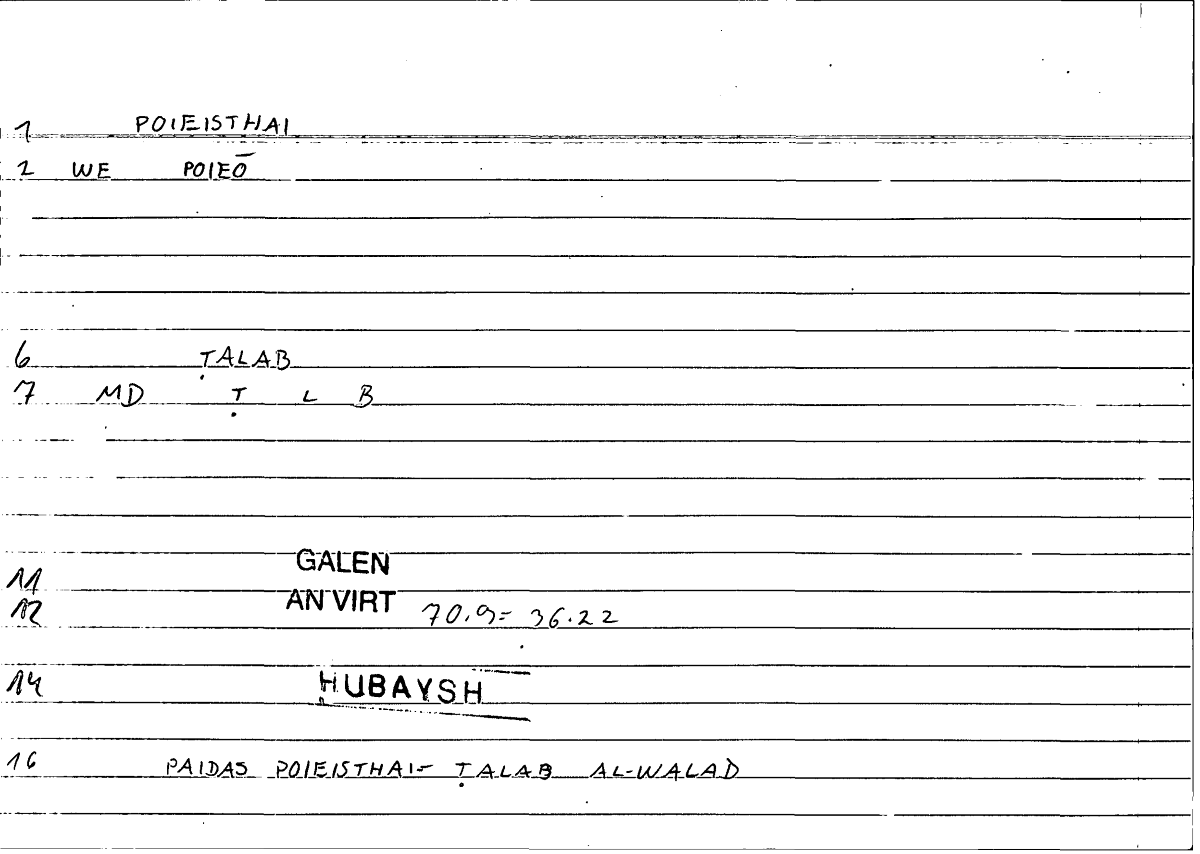 1 POIEISTHAI
2 WE POIEŌ
6 ṬALAB
7 MD Ṭ L B
11 GALEN
12 AN VIRT 70.9= 36.22
14 HUBAYSH
16 PAIDAS POIEISTHAI= ṬALAB AL-WALAD